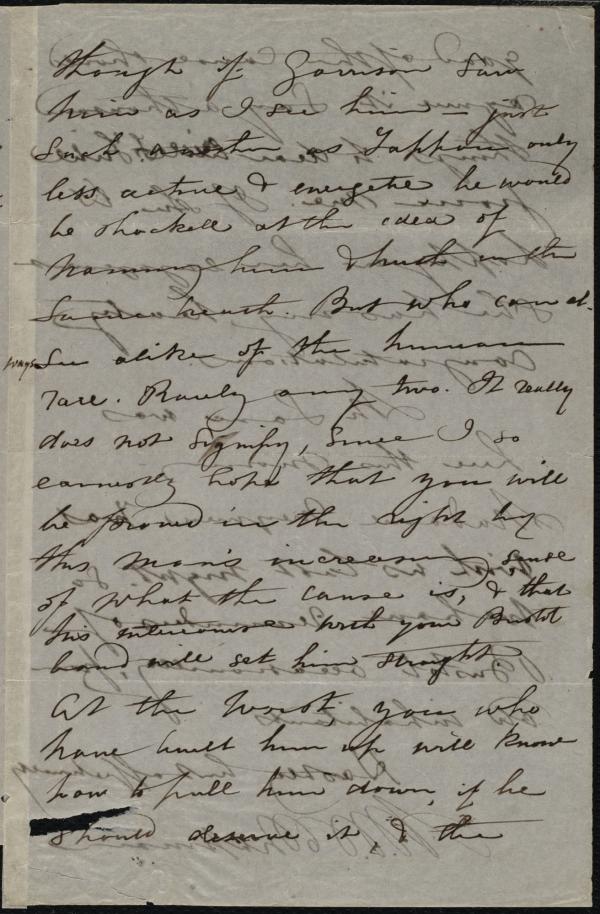 though if Garrison saw
him as I see him – just
such another as Tappan only
less active & energetic he would
be shocked at the idea of
naming him & such in the
same breath. But who can al-
ways see alike of the human
race. Rarely any two. It really
does not signify, since I so
earnestly hope that you will
be proved in the right by
this man's increasing sense
of what the cause is, & that
his intercourse with your Bristol
band will set him straight.
At the worst you who
have built him up will know
how to pull him down, if he
should deserve it, & the